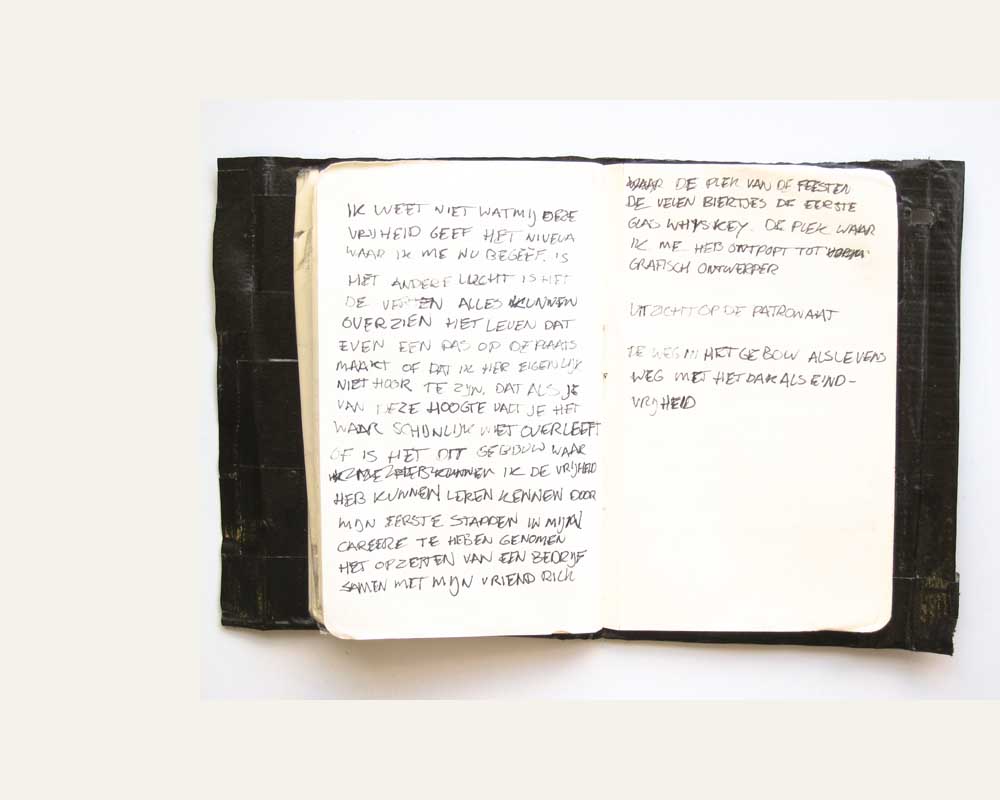 IK WEET NIET WAT MIJ DEZE
VRIJHEID GEEF HET NIVEUA
WAAR IK ME NU BEGEEF. IS
HET ANDERE LUCHT IS HET
DE VERTEN ALLES KUNNEN
OVERZIEN HET LEVEN DAT
EVEN EEN PAS OP DE PLAATS
MAAKT OF DAT IK HIER EIGENLIJK
NIET HOOR TE ZIJN. DAT ALS JE
VAN DEZE HOOGTE VALT JE HET
WAAR SCHIJNLIJK NIET OVERLEEFT
OF IS HET DIT GEBOUW WAAR
IK DE VRIJHEID
HEB KUNNEN LEREN KENNEN DOOR
MIJN EERSTE STAPPEN IN MIJN
CAREERE TE HEBEN GENOMEN
HET OPZETTEN VAN EEN BEDRIJF
SAMEN MET MIJN VRIEND RICK
WAAR DE PLEK VAN DE FEESTEN
DE VELEN BIERTJES DE EERSTE
GLAS WHYSKEY. DE PLEK WAAR
IK ME HEB ONTPOPT TOT
GRAFISCH ONTWERPER
UITZICHT OP DE PATRONAAT
DE WEG IN HET GEBOUW ALS LEVENS
WEG MET HET DAK ALS EIND-
VRIJHEID